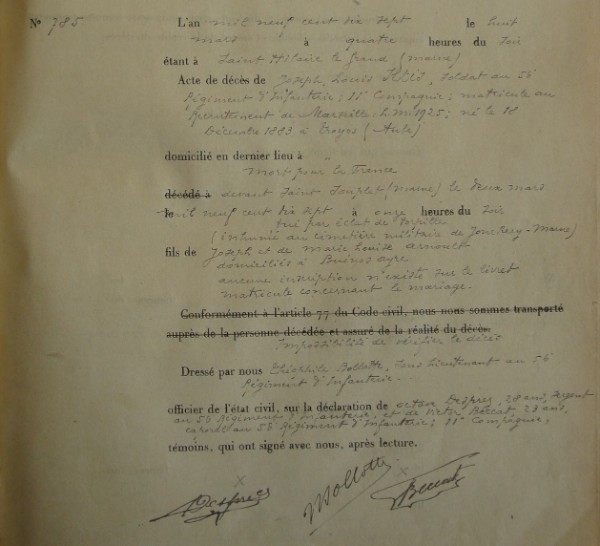 No 785
L'an mil neuf cent dix sept le huit
mars à quatre heures du soir
étant à Saint Hilaire le Grand (Marne)
Acte de décès de Joseph, Louis soldat au 58
Régiment d'Infanterie; 11e Compagnie; matricule au
Recrutement de Marseille L.M. 1925; né le 18
Décembre 1883 à Troyes (Aube)
domicilié en dernier lieu à "
Mort pour la France
décédé à devant Saint Souplet (Marne) le deux mars
le mil neuf cent dix sept à onze heures du soir
tué par éclat de
(inhumé au cimetière militaire de Jonchery-Marne)
fils de Joseph et de Marie Louise Arnoult
domiciliés à Buenos ayre
aucune inscription n'existe sur le livret
matricule concernant le mariage.
Conformément à l'article 77 du Code civil, nous nous sommes transporté
auprès de la personne décédée et assuré de la réalité du décès.
Impossibilité de vérifier le décès
Dressé par nous Théophile Bollotte, sous Lieutenant au 58
Régiment d'Infanterie.
officier de l'état civil, sur la déclaration de Despres, 28 ans, sergent
au 58 Régiment d'Infanterie, et de Victor Beccat, 23 ans,
caporal au 58 Régiment d'Infanterie; 11e Compagnie,
témoins, qui ont signé avec nous, après lecture.
Despres Bollotte Beccat